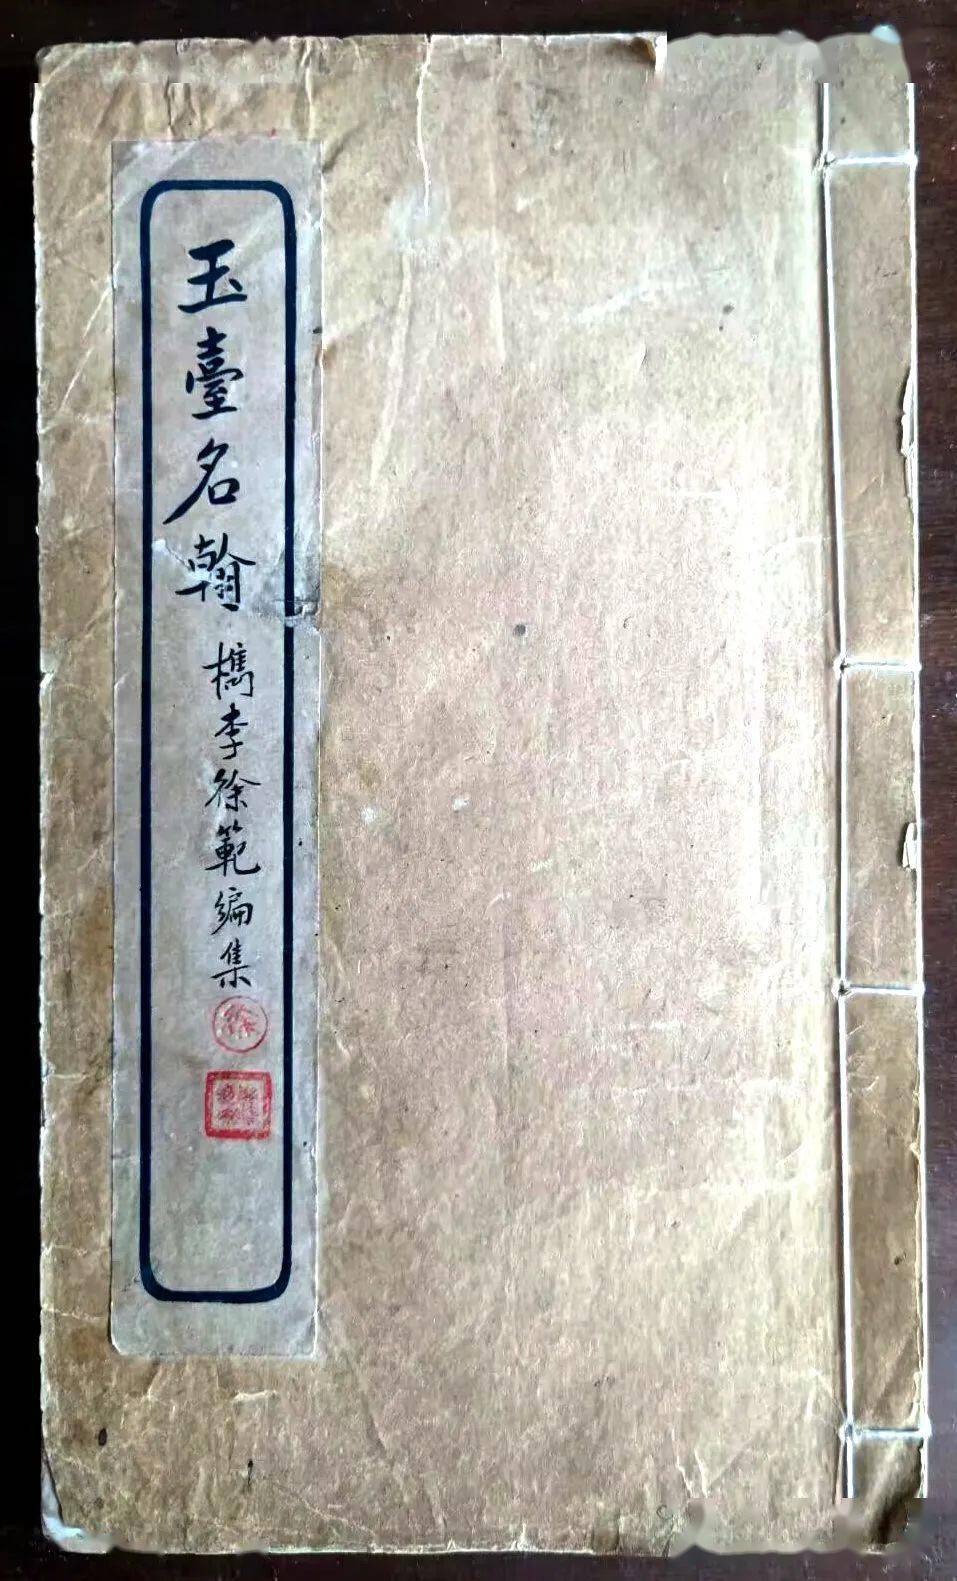 玉臺名翰
檇李徐範編集
徐